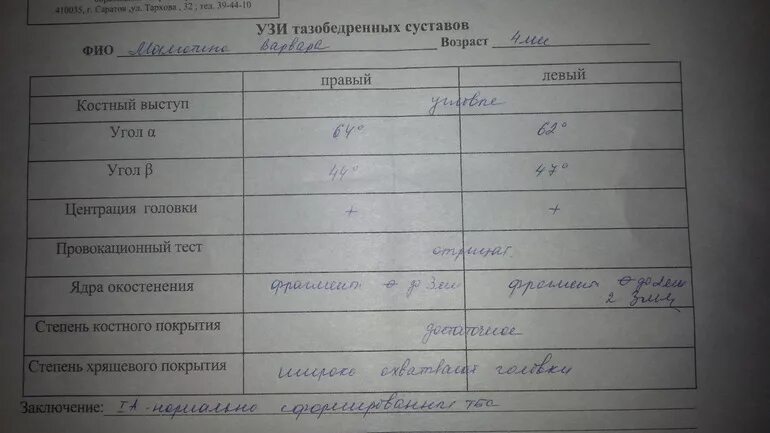 410035, г. Саратов ,ул. Тархова , 32 ; тел. 39-44-10
УЗИ тазобедренных суставов
ФИО Варвара Возраст 4 мес
правый левый
Костный выступ угловые
Угол α 64° 62°
Угол β 44° 47°
Центрация головки + +
Провокационный тест отрицат.
Ядра окостенения фрагмент до 3мм фрагмент до 2мм
2 3мм
Степень костного покрытия достаточное
Степень хрящевого покрытия широко охватывает головки
Заключение: IA - нормально сформированный тбс